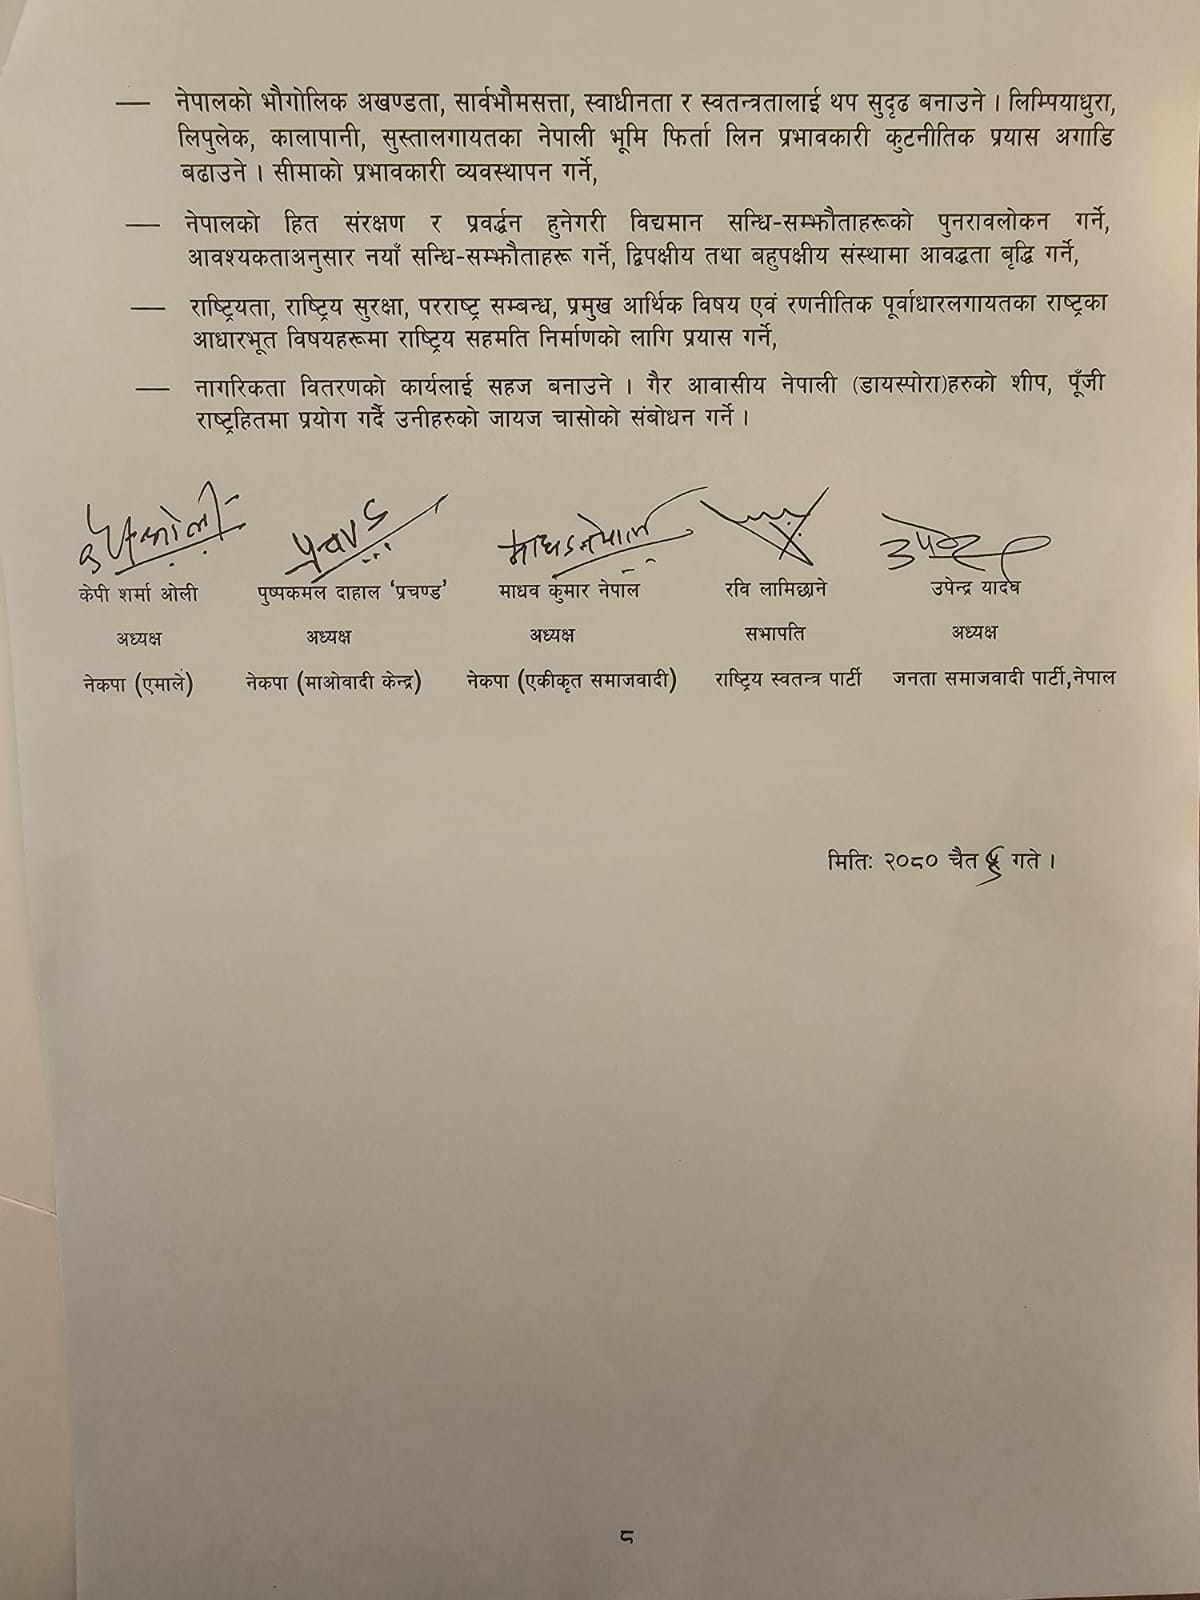 — नेपालको भौगोलिक अखण्डता, सार्वभौमसत्ता, स्वाधीनता र स्वतन्त्रतालाई थप सुदृढ बनाउने । लिम्पियाधुरा,
लिपुलेक, कालापानी, सुस्तालगायतका नेपाली भूमि फिर्ता लिन प्रभावकारी कुटनीतिक प्रयास अगाडि
बढाउने । सीमाको प्रभावकारी व्यवस्थापन गर्ने,
— नेपालको हित संरक्षण र प्रवर्द्धन हुनेगरी विद्यमान सन्धि-सम्झौताहरूको पुनरावलोकन गर्ने,
आवश्यकताअनुसार नयाँ सन्धि-सम्झौताहरू गर्ने, द्विपक्षीय तथा बहुपक्षीय संस्थामा आवद्धता बृद्धि गर्ने,
— राष्ट्रियता, राष्ट्रिय सुरक्षा, परराष्ट्र सम्बन्ध, प्रमुख आर्थिक विषय एवं रणनीतिक पूर्वाधारलगायतका राष्ट्रका
आधारभूत विषयहरूमा राष्ट्रिय सहमति निर्माणको लागि प्रयास गर्ने,
— नागरिकता वितरणको कार्यलाई सहज बनाउने । गैर आवासीय नेपाली (डायस्पोरा)हरुको शीप, पूँजी
राष्ट्रहितमा प्रयोग गर्दै उनीहरुको जायज चासोको संबोधन गर्ने ।
केपी शर्मा ओली पुष्पकमल दाहाल ‘प्रचण्ड’ माधव कुमार नेपाल रवि लामिछाने उपेन्द्र यादव
अध्यक्ष अध्यक्ष अध्यक्ष सभापति अध्यक्ष
नेकपा (एमाले) नेकपा (माओवादी केन्द्र) नेकपा (एकीकृत समाजवादी) राष्ट्रिय स्वतन्त्र पार्टी जनता समाजवादी पार्टी,नेपाल
मितिः २०८० चैत गते ।
८